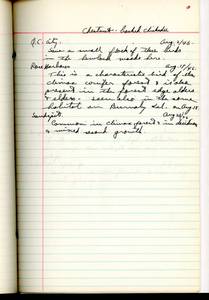 Chestnut-Backed Chickadee
Q.C. City. Aug. 9/46.
Saw a small flock of these birds
in the hemlock woods here.
Rose Harbour Aug. 17/46.
This is a characteristic bird of the
climax conifer forest & is also
present in the forest edge alders
& elders. Seen also in the same
habitat on Burnaby Isl. on Aug 18
Sandspit Aug 28/46
Common in climax forest & in deciduous
& mixed second growth.